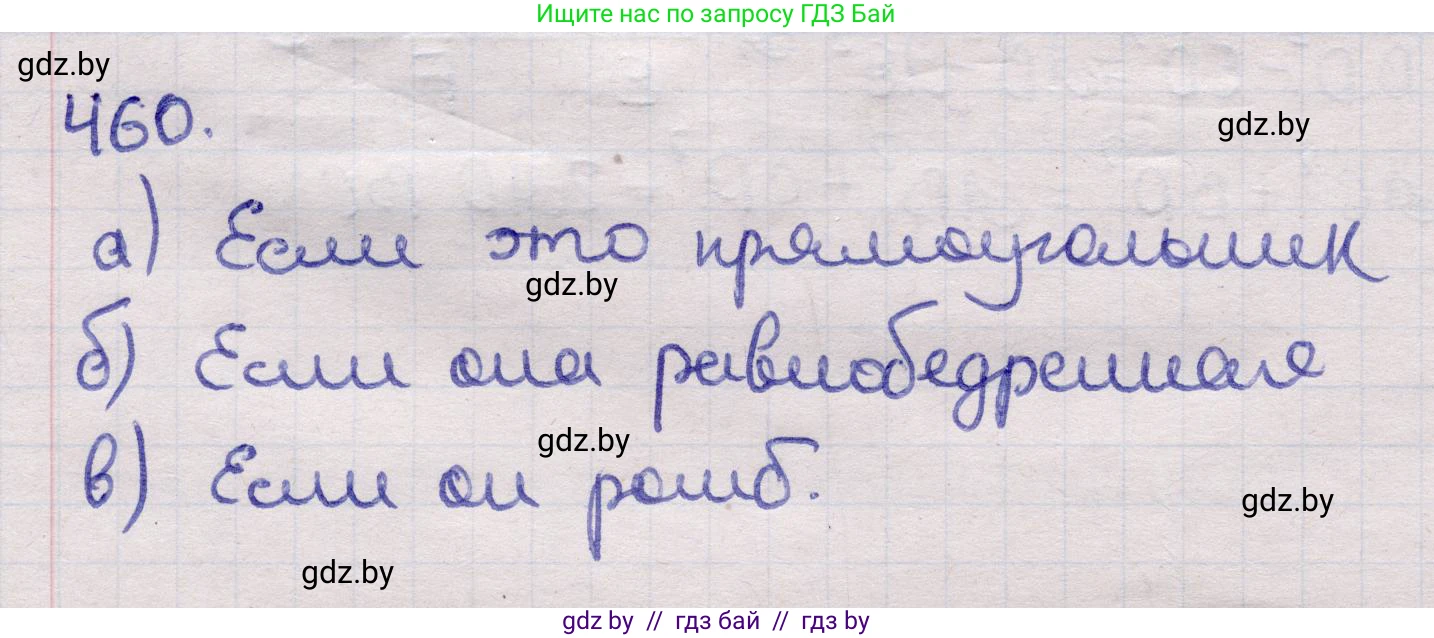 Ищите нас по запросу ГДЗ Бай
gdz.by
460.
gdz.by
а) Если это прямоугольник
gdz.by
б) Если она равнобедренная
gdz.by
в) Если он ромб.
gdz.by
gdz.by
gdz by // гдз бай // гдз by